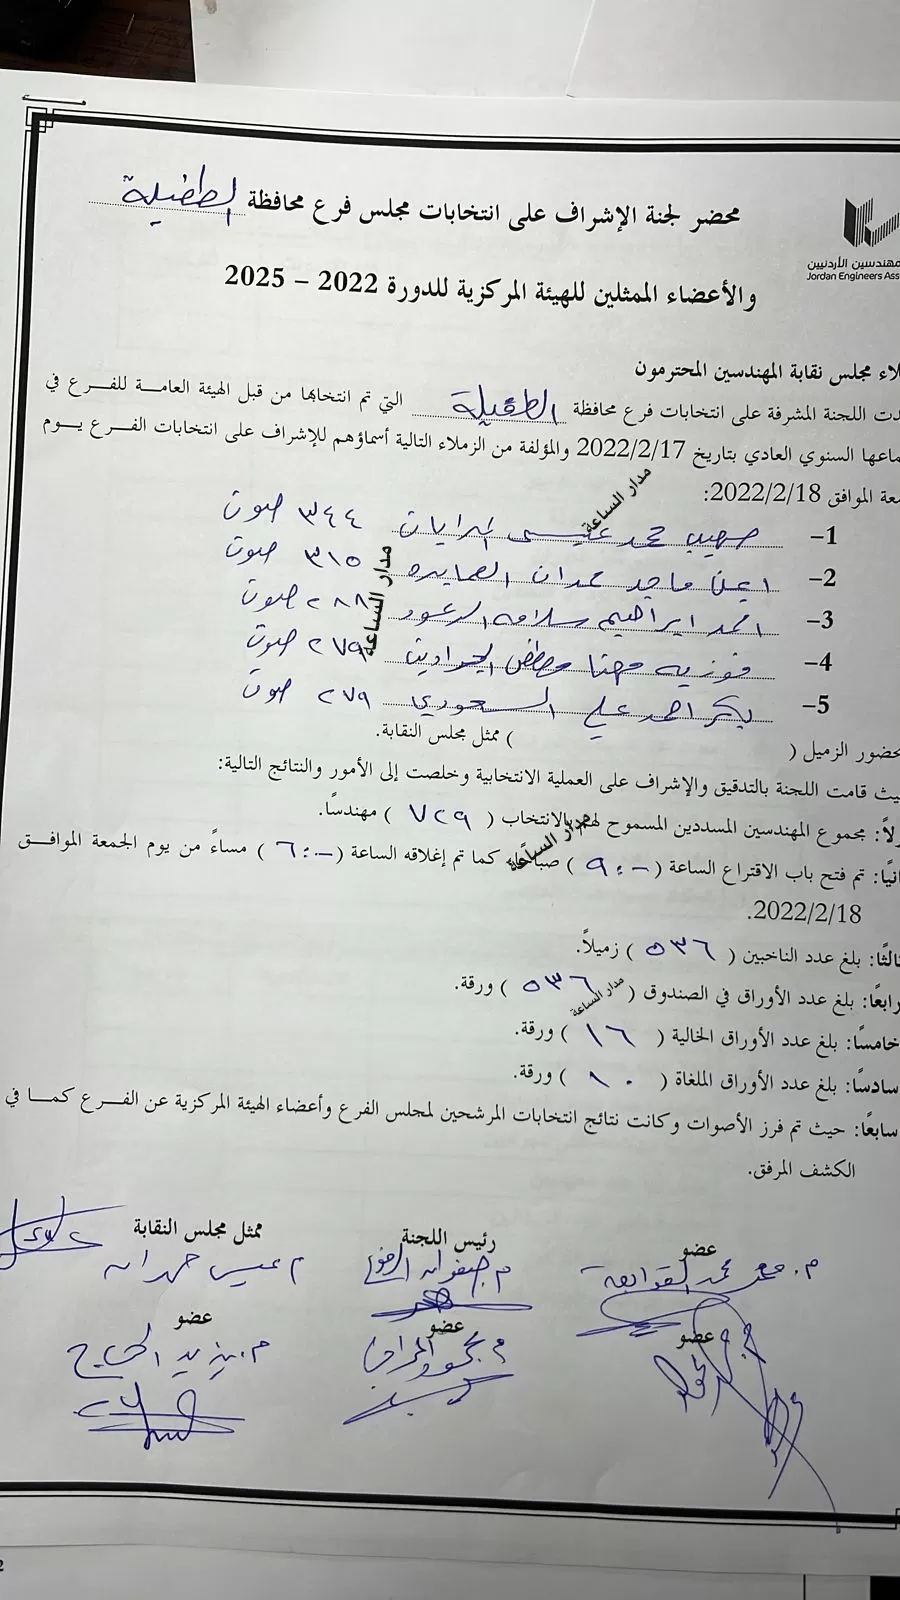 محضر لجنة الإشراف على انتخابات مجلس فرع محافظة الطفيلة
مهندسين الأردنيين
Jordan Engineers Ass
والأعضاء الممثلين للهيئة المركزية للدورة 2022 – 2025
لاء مجلس نقابة المهندسين المحترمون
دت اللجنة المشرفة على انتخابات فرع محافظة الطفيلة التي تم انتخابها من قبل الهيئة العامة للفرع في
ماعها السنوي العادي بتاريخ 2022/2/17 والمؤلفة من الزملاء التالية أسماؤهم للإشراف على انتخابات الفرع يوم
عة الموافق 2022/2/18:
1- صهيب محمد عيسى المرايات ٣٤٤ صوت
2- ماجد حمدان ٣١٥ صوت
3- احمد ابراهيم سلامه ٢٨٨ صوت
4- فوزيه مهنا ٢٧٩ صوت
5- بكر احمد علي السعودي ٢٧٩ صوت
حضور الزميل ( ) ممثل مجلس النقابة.
يث قامت اللجنة بالتدقيق والإشراف على العملية الانتخابية وخلصت إلى الأمور والنتائج التالية:
ولاً: مجموع المهندسين المسددين المسموح لهم بالانتخاب ( ٧٢٩ ) مهندساً.
انيًا: تم فتح باب الاقتراع الساعة ( ٩:- ) صباحاً، كما تم إغلاقه الساعة ( ٦:- ) مساءً من يوم الجمعة الموافق
2022/2/18.
الثًا: بلغ عدد الناخبين ( ٥٣٦ ) زميلاً.
رابعًا: بلغ عدد الأوراق في الصندوق ( ٥٣٦ ) ورقة.
خامسًا: بلغ عدد الأوراق الخالية ( ١٦ ) ورقة.
سادسًا: بلغ عدد الأوراق الملغاة ( ١٠ ) ورقة.
سابعًا: حيث تم فرز الأصوات وكانت نتائج انتخابات المرشحين لمجلس الفرع وأعضاء الهيئة المركزية عن الفرع كما في
الكشف المرفق.
عضو رئيس اللجنة ممثل مجلس النقابة
م. محمد م. صفوان م عيسى
عضو عضو عضو
م. يزيد
مدار الساعة
مدار الساعة
مدار الساعة
مدار الساعة